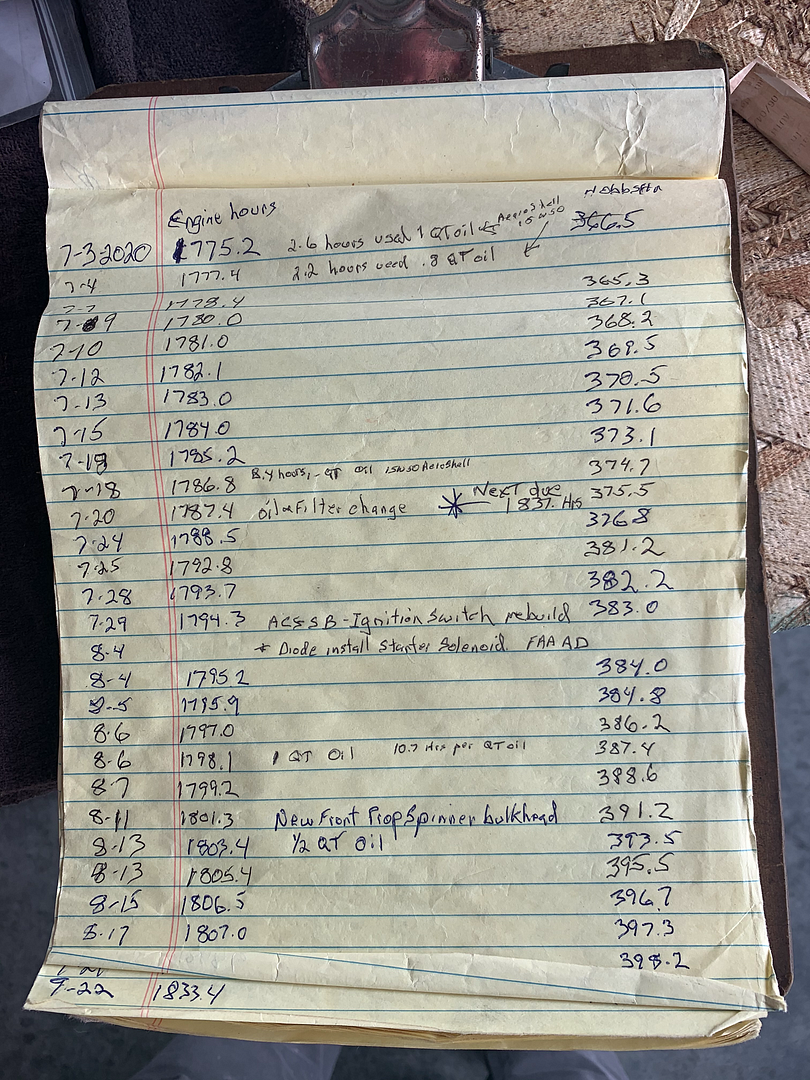 Engine hours Hobbs
7-3-2020 1775.2 2.6 hours used 1 QT oil AeroShell 15w50 366.5
7-4 1777.4 2.2 hours used .8 QT oil 365.3
7-7 1778.4 367.1
7-9 1780.0 368.2
7-10 1781.0 369.5
7-12 1782.1 370.5
7-13 1783.0 371.6
7-15 1784.0 373.1
7-18 1785.2 374.7
7-18 1786.8 8.4 hours, QT Oil 15w50 AeroShell 375.5
7-20 1787.4 oil & Filter change * Next due 1837. Hrs 376.8
7-24 1788.5 381.2
7-25 1792.8 382.2
7-28 1793.7 383.0
7-29 1794.3 ACS SB-Ignition Switch rebuild
8-4 * Diode install Starter Solenoid. FAA AD
8-4 1795.2 384.0
8-5 1795.9 384.8
8-6 1797.0 386.2
8-6 1798.1 1 QT Oil 10.7 Hrs per QT oil 387.4
8-7 1799.2 388.6
8-11 1801.3 New Front Prop Spinner bulkhead 391.2
8-13 1803.4 1/2 QT Oil 393.5
8-13 1805.4 395.5
8-15 1806.5 396.7
8-17 1807.0 397.3
398.2
9-22 1833.4